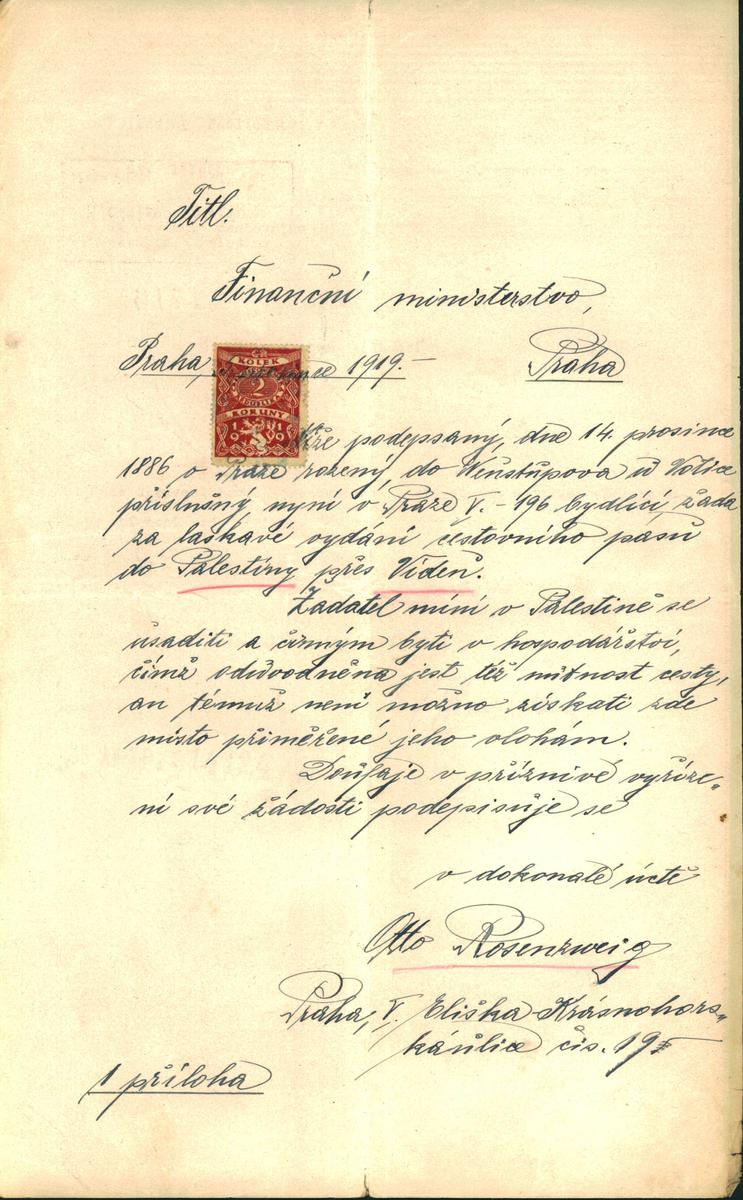 Titl.
Finanční ministerstvo,
Praha, 1919.-
Praha
KOLEK
2
KORUNY
1919
Níže podepsaný, dne 14. prosince
1886 v Praze rozený, do Veństupova u Votice
příslušný nyní v Praze V.-196 bydlící, žádá
za laskavé vydání cestovního pasu
do Palestiny přes Vídeň.
Žadatel míní v Palestině se
usaditi a činným býti v hospodářství,
čímž odůvodněna jest též nutnost cesty,
an témuž není možno získati zde
místo přiměřené jeho vlohám.
Doufaje v příznivé vyříze„
ní své žádosti podepisuje se
v dokonalé úctě
Otto Rosenzweig
Praha, V. Eliška Krásnohors„
ká ulice čís. 19
1 příloha